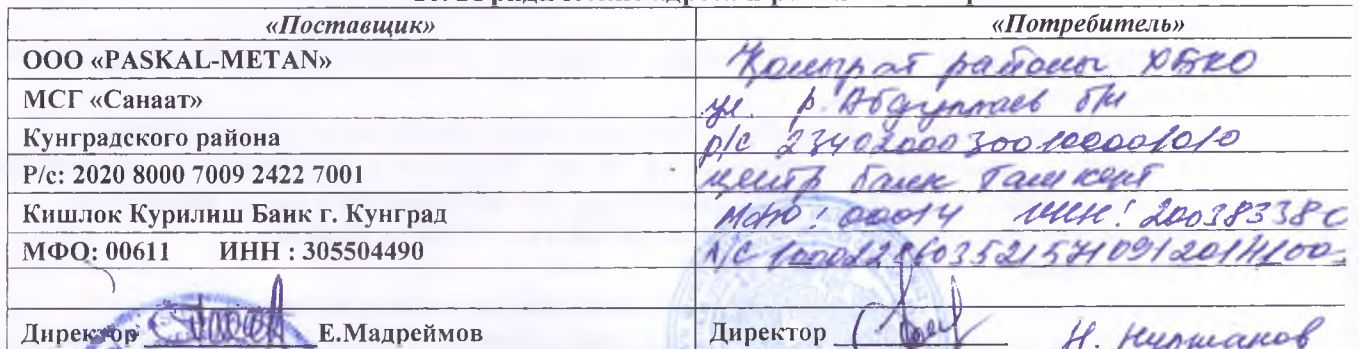 «Поставщик» «Потребитель»
ООО «PASKAL-METAN» Қоңырат районы ХБКО
МСГ «Санаат» ул. р. Абдуллаев б/н
Кунградского района р/с 23402000300100001010
Р/с: 2020 8000 7009 2422 7001 центр банк Ташкент
Кишлок Курилиш Банк г. Кунград МФО: 00014 ИНН: 200383380
МФО: 00611 ИНН : 305504490 Л/С
Директор Е.Мадреймов Директор Н.